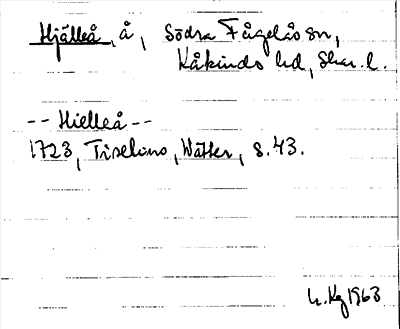 Hjälleå, å, Södra Fågelås sn,
Kåkinds hd, Skar. l.
-- Hielleå --
1723, Tiselius, Wätter, s. 43.
Kg 1963